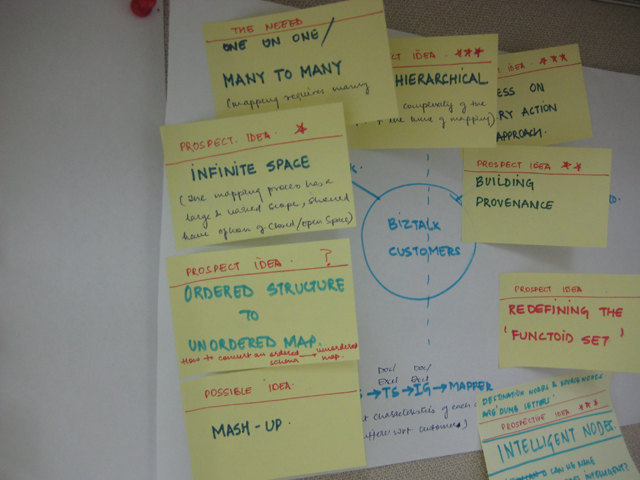 THE NEEED
ONE ON ONE /
MANY TO MANY
(mapping requires many
IDEA ***
HIERARCHICAL
complexity of the
of mapping)
IDEA ***
ESS ON
RY ACTION
APPROACH.
PROSPECT IDEA *
INFINITE SPACE
(The mapping process has a
large & varied scope, should
have option of closed/open space)
PROSPECT IDEA **
BUILDING
PROVENANCE
BIZTALK
CUSTOMERS
PROSPECT IDEA ?
ORDERED STRUCTURE
TO
UNORDERED MAP.
How to convert an ordered schema → unordered map.
PROSPECT IDEA
REDEFINING THE
'FUNCTOID SET'
POSSIBLE IDEA
MASH-UP.
Doc/ Excel
Doc/ Excel
S → TS → IG → MAPPER
characteristics of each
customers)
DESTINATION NODES & SOURCE NODES
ARE 'DUMB LETTERS'
PROSPECTIVE IDEA **
INTELLIGENT NODES
CAN WE MAKE
INTELLIGENT?